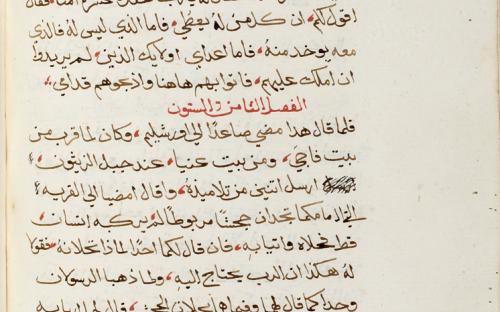 اقول لكم، ان كل من له يعطى، فاما الذي ليس له فالذي
معه يوخد منه، فاما اعداي اولايك الذين لم يريدوا
ان املك عليهم، فاتوا بهم هاهنا واذبحوهم قدامي،
الفصل الثامن والستون
فلما قال هدا مضي صاعدًا الي اورشليم، وكان لما قرب من
بيت فاجي، ومن بيت عنيا، عند جبل الزيتون،
ارسل اتنين من تلاميده، وقال امضيا الي القريه
التي امامكما تجدان جحشًا مربوطًا لم يركبه انسان
قط فحلاه واتيا به، فان قال لكما احدًا لماذا تحلانه، فقولا
له هكذا ان الرب يحتاج اليه، ولما ذهبا الرسولان
وجدا كما قال لهما وفيما هما يحلان الجحش، قال لهما اربابه